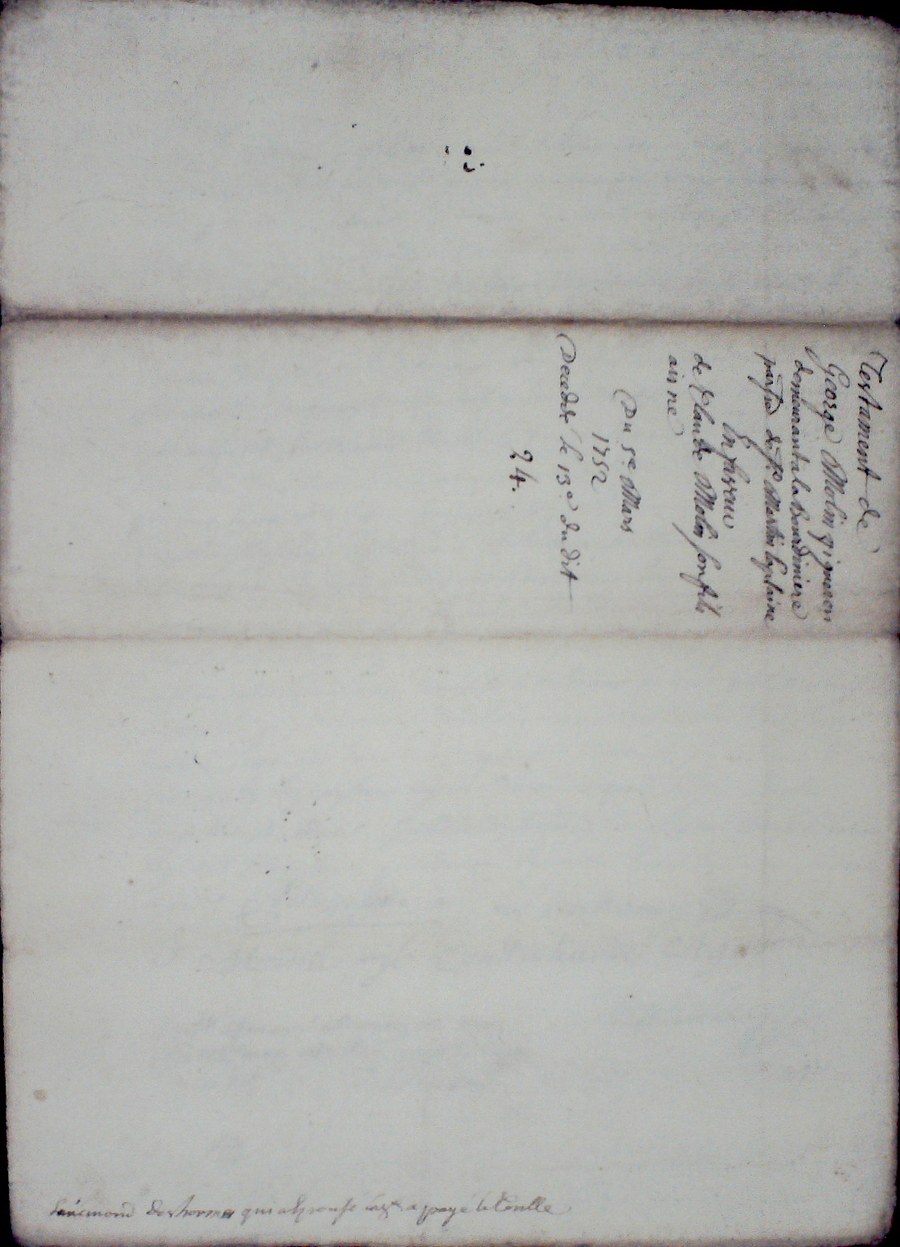 Testament de
George Molin vigneron
demeurant a la Bourdiniere
parsse de St Martin la plaine
En faveur
de Claude Molin son fils
aisne
Du 5e Mars
1752
Decedé le 13e du dit
24.
qui a Epousé a payé le Conlle